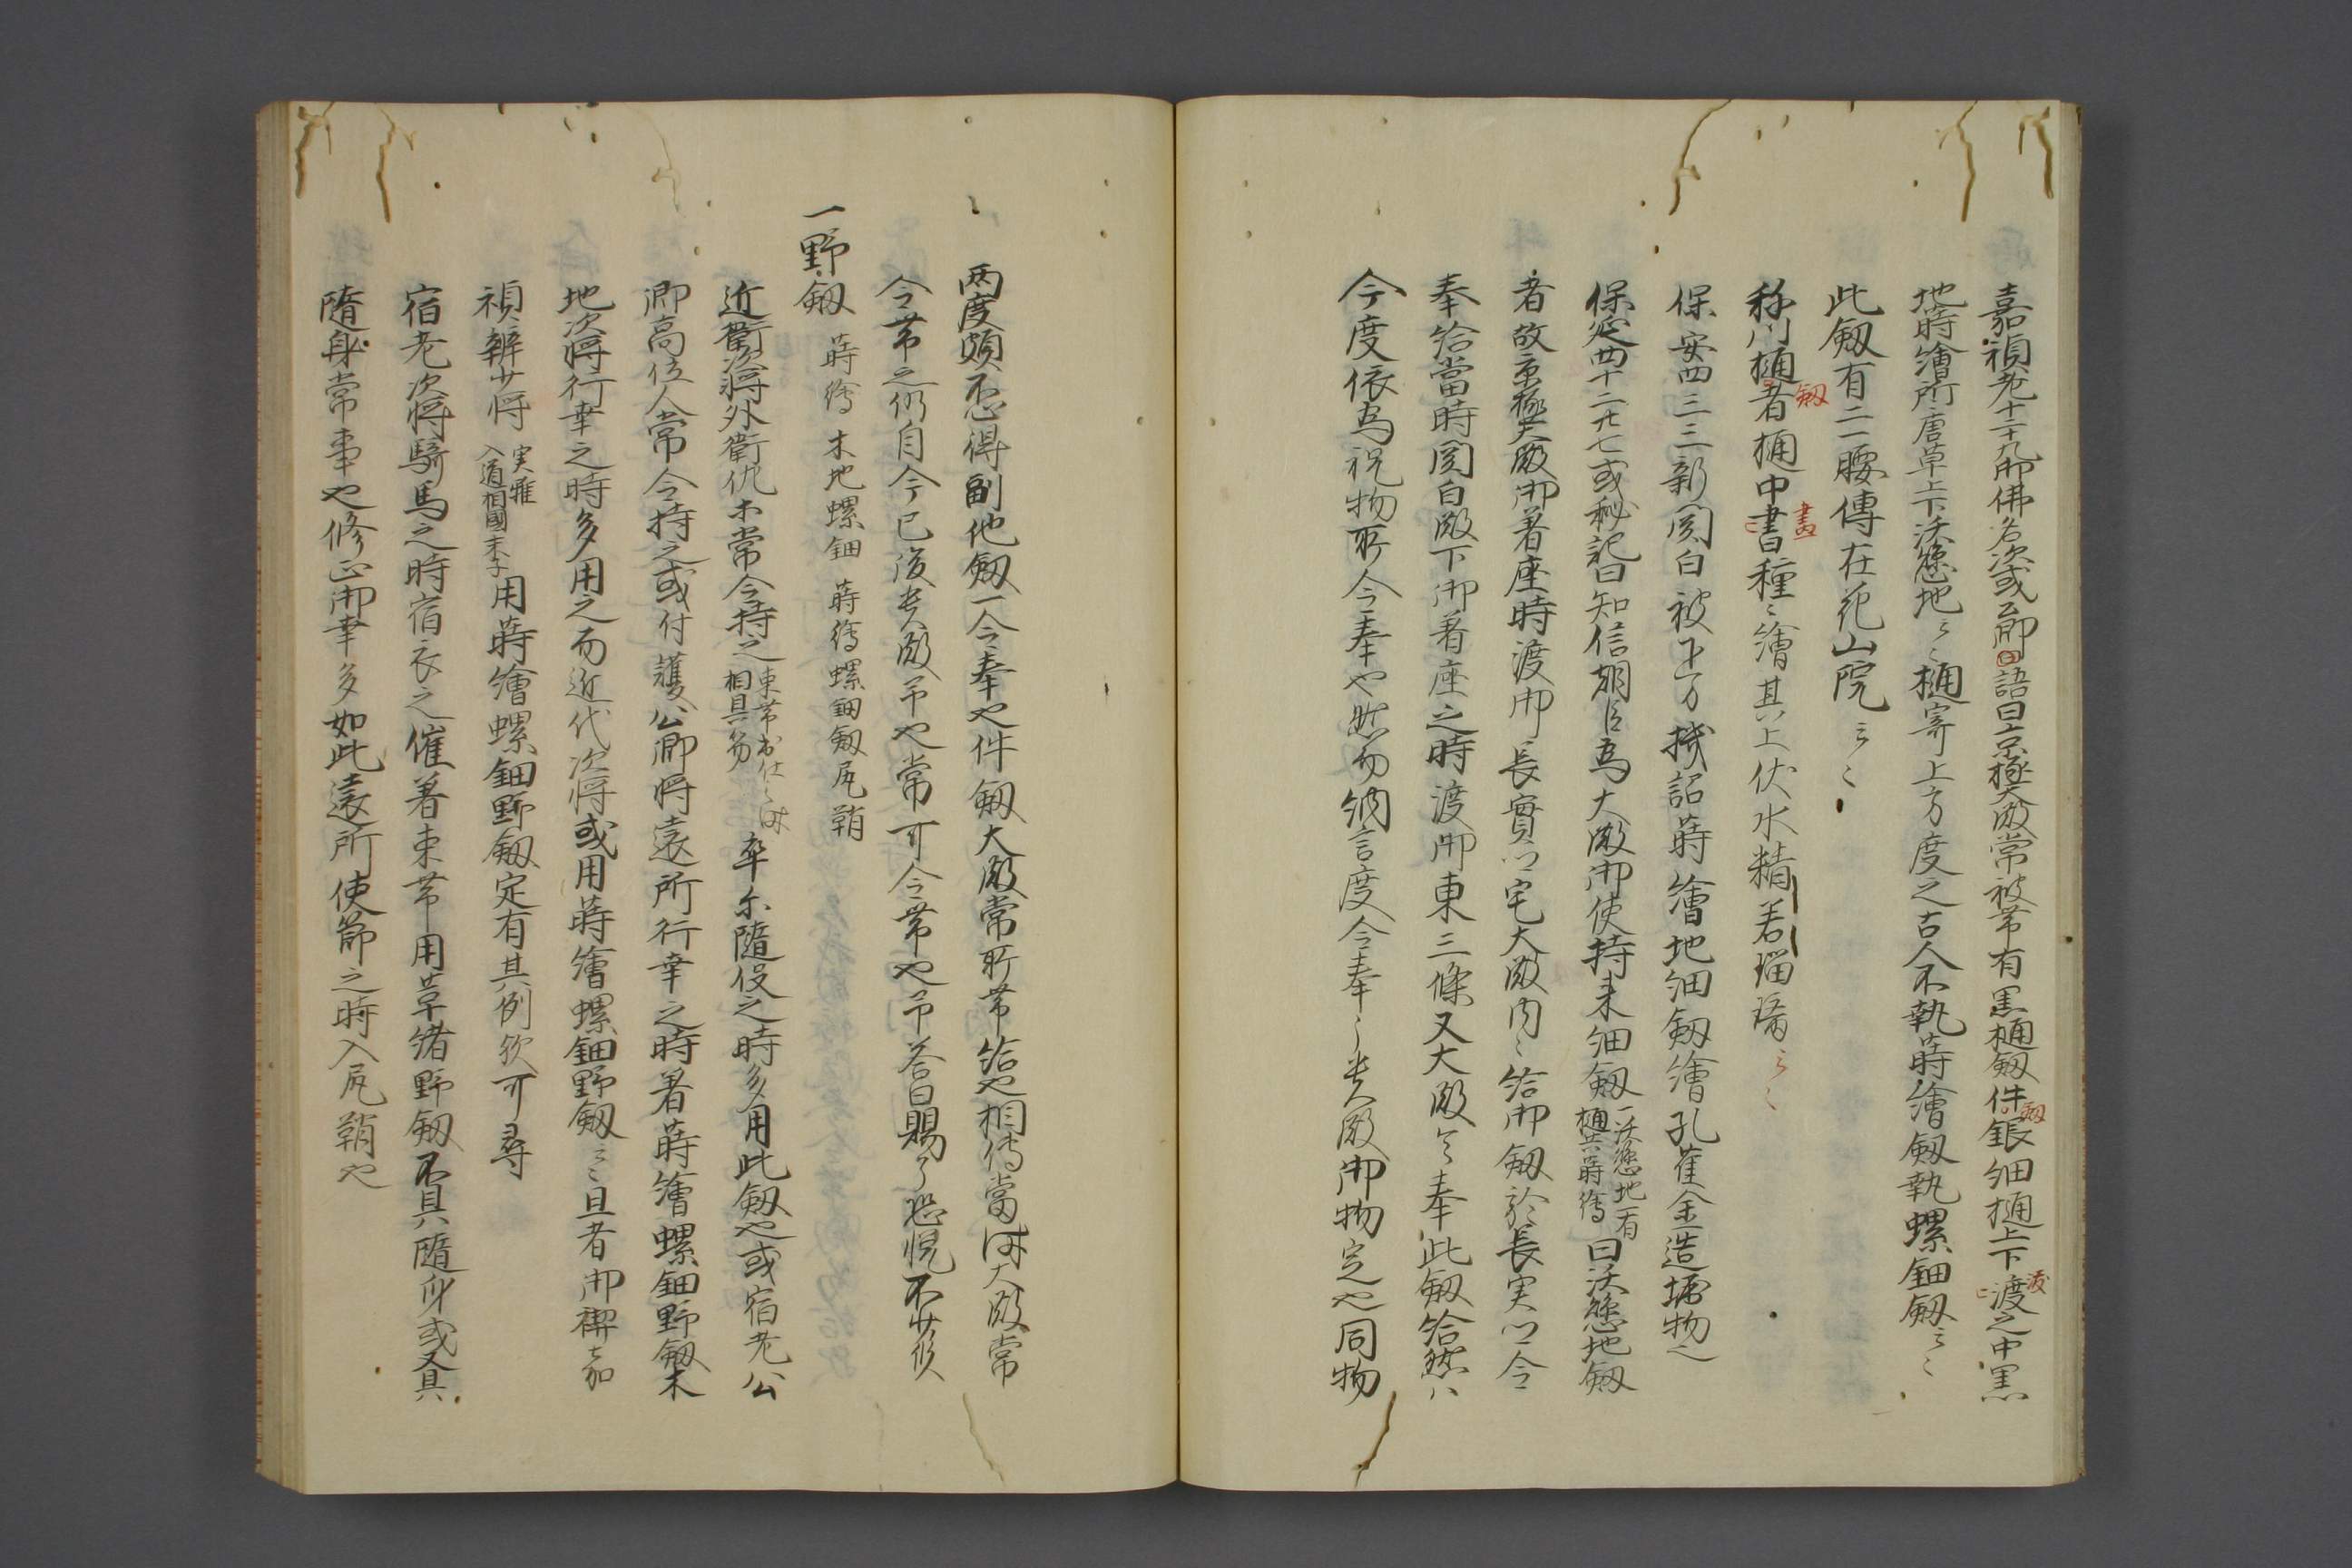 嘉禎元十二十九御佛名次或云卿語曰京極大殿常被帯有黒樋劔件銀細樋上下渡之中黒
地蒔繪所唐草上下沃懸地云々樋寄上方度之古人不執蒔繪劔執螺鈿劔云々
此劔有二腰傳在花山院云々
称川樋者樋中書種々繪其上伏水精若瑠璃云々
保安四三三新関白被下万機詔蒔繪地細劔繪孔雀金造壖物也
保延四十二廿七或秘記曰知信朝臣為大殿御使持来細劔一沃懸地有樋蒔繪曰沃懸地劔
者故京極大殿御著座時渡御長實卿宅大殿内々給御劔於長実卿令
奉給當時関白殿下御著座之時渡御東三條又大殿令奉此劔給然
今度依為祝物所令奉也然而納言度令奉之大殿御物定也同物
両度頗不得副他劔一令奉也件劔大殿常所帯給也相傳當時大殿常
令帯之仍自今已後大殿予也常可令帯也予答曰賜了恐悦不少
一野劔 蒔繪 木地螺鈿 蒔繪螺鈿劔尻鞘
近衛次将外衛佐常令持之束帯出仕之時相具 卒尓隨役之時多用此劔也或宿老公
卿高位人常令持之或付護公卿将遠所行幸之時著蒔繪螺鈿野劔木
地次将行幸之時多用之而近代次将或用蒔繪螺鈿野劔云々且者御禊嘉
禎辨少将実雅入道相國末子用蒔繪螺鈿野劔定有其例歟可尋
宿老次将騎馬之時宿衣之催著束帯用革緒野劔不具隨身或又具
隨身常事也修正御幸多如此遠所使節之時入尻鞘也